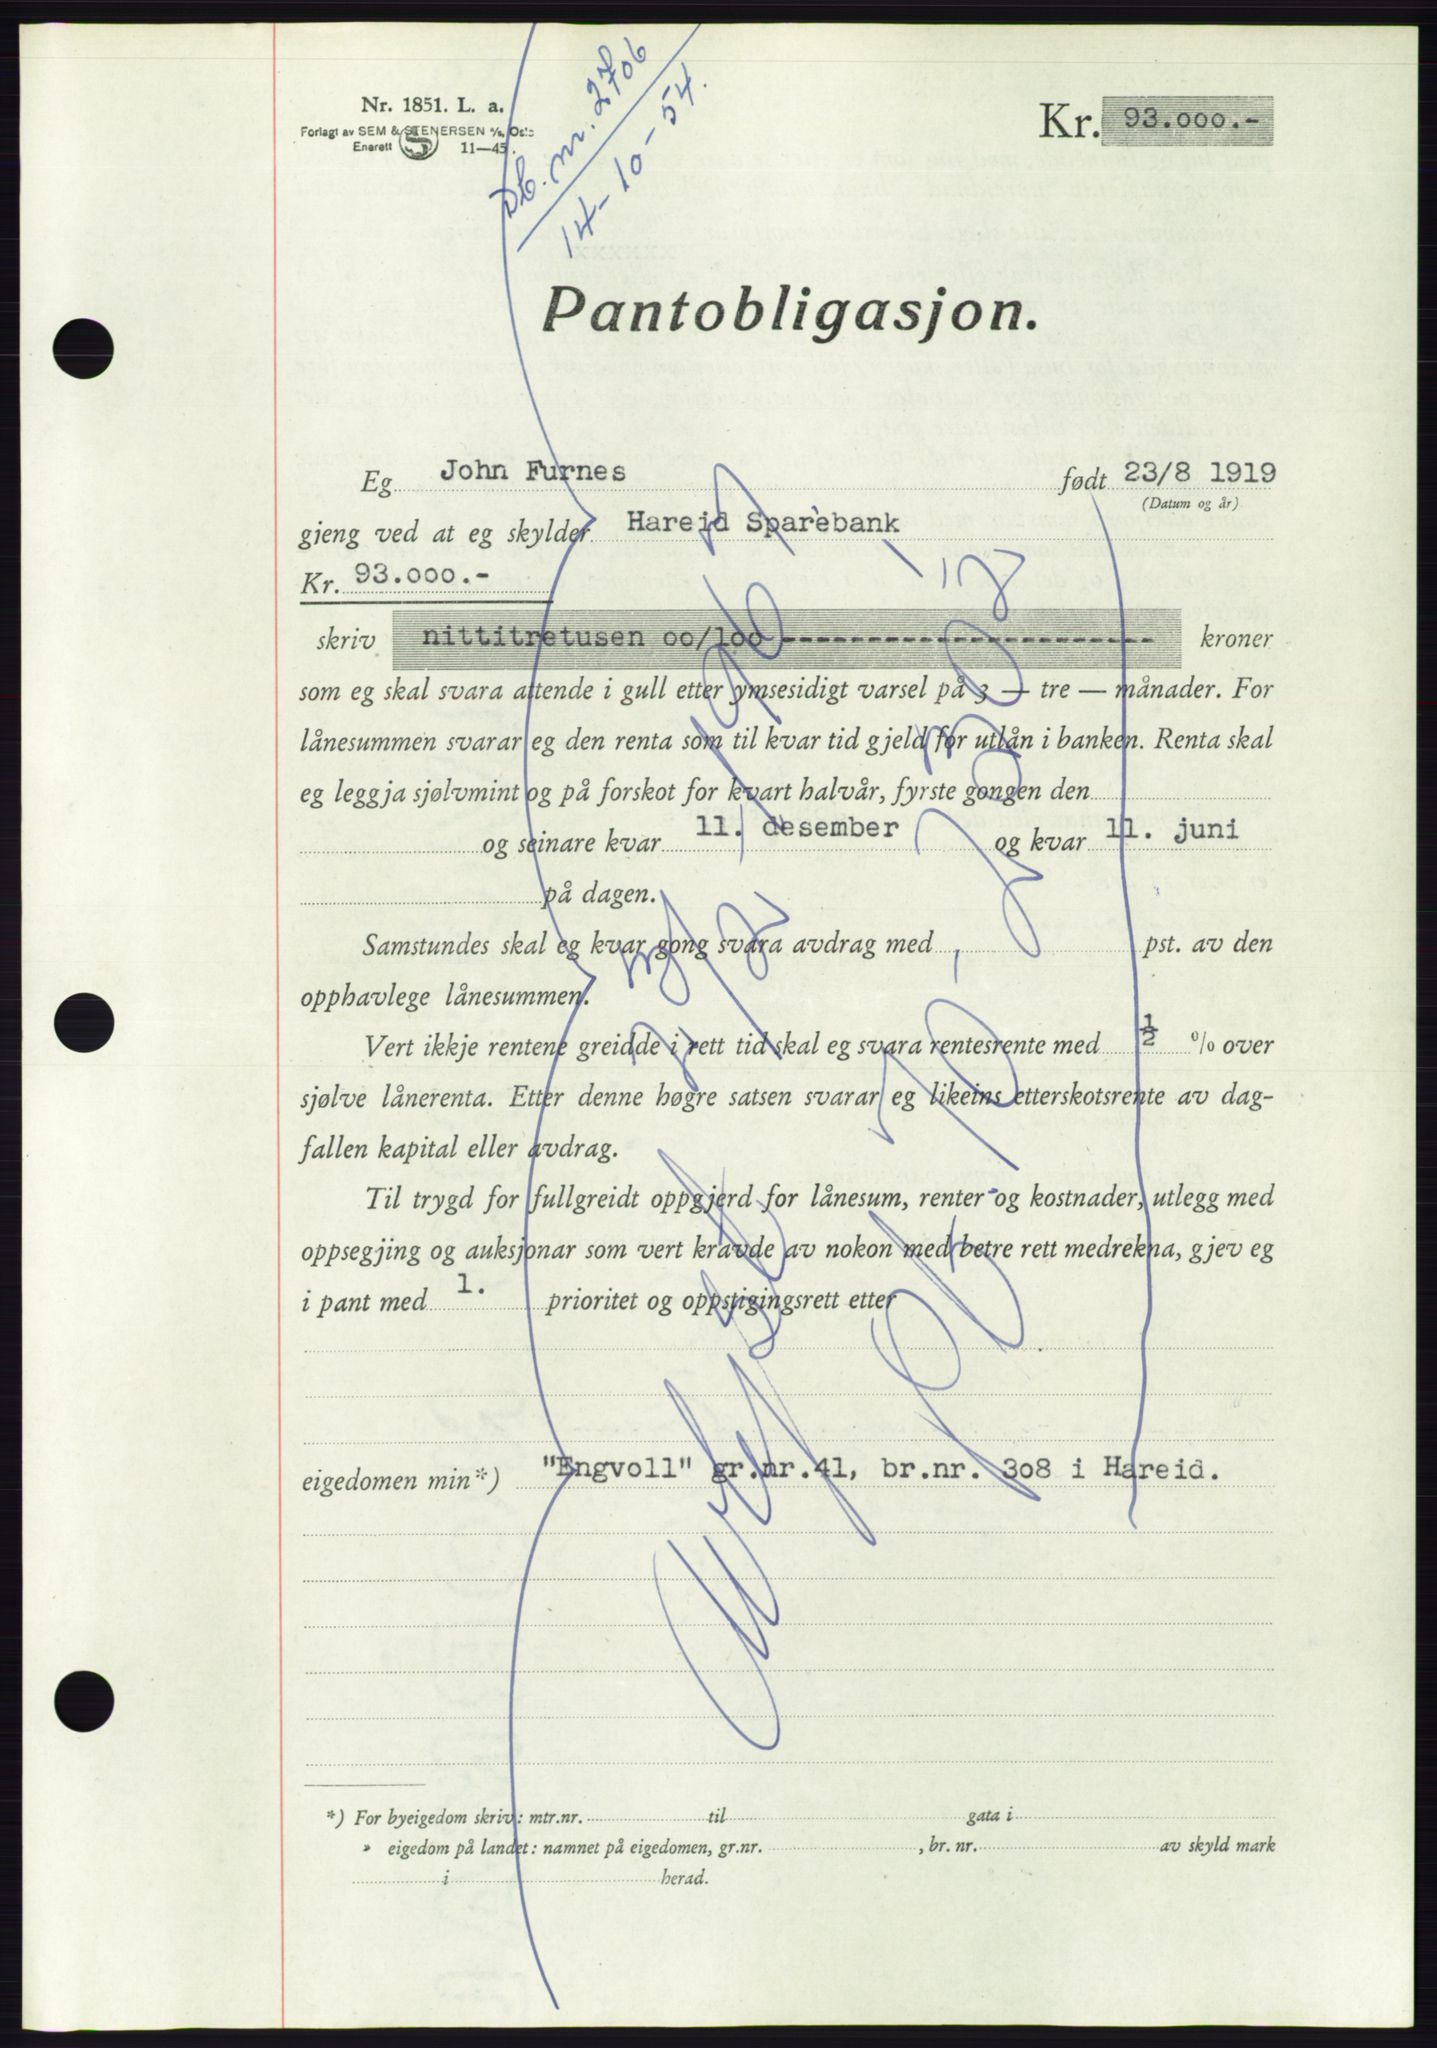 Nr. 1851. L. a.
Forlagt av SEM & STENERSEN A/S, Oslo
Enerett S 11—45.
Db. nr. 2706
14-10-54.
Kr. 93.000.-
Pantobligasjon.
Eg John Furnes født 23/8 1919
(Datum og år)
gjeng ved at eg skylder Hareid Sparebank
Kr. 93.000.-
skriv nittitretusen oo/1oo -------------------- kroner
som eg skal svara attende i gull etter ymsesidigt varsel på 3 — tre — månader. For
lånesummen svarar eg den renta som til kvar tid gjeld for utlån i banken. Renta skal
eg leggja sjølvmint og på forskot for kvart halvår, fyrste gongen den
og seinare kvar 11. desember og kvar 11. juni
på dagen.
Samstundes skal eg kvar gong svara avdrag med pst. av den
opphavlege lånesummen.
Vert ikkje rentene greidde i rett tid skal eg svara rentesrente med ½ % over
sjølve lånerenta. Etter denne høgre satsen svarar eg likeins etterskotsrente av dag-
fallen kapital eller avdrag.
Til trygd for fullgreidt oppgjerd for lånesum, renter og kostnader, utlegg med
oppsegjing og auksjonar som vert kravde av nokon med betre rett medrekna, gjev eg
i pant med 1. prioritet og oppstigingsrett etter
eigedomen min*) "Engvoll" gr.nr.41, br.nr. 308 i Hareid.
*) For byeigedom skriv: mtr.nr. til gata i
» eigedom på landet: namnet på eigedomen, gr.nr. , br. nr. av skyld mark
i herad.